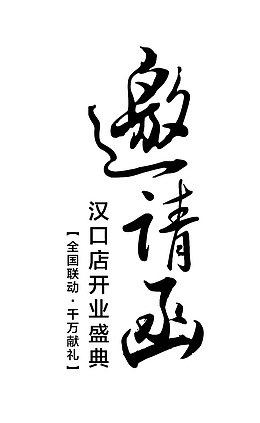 邀请函
汉口店开业盛典
【全国联动·千万献礼】